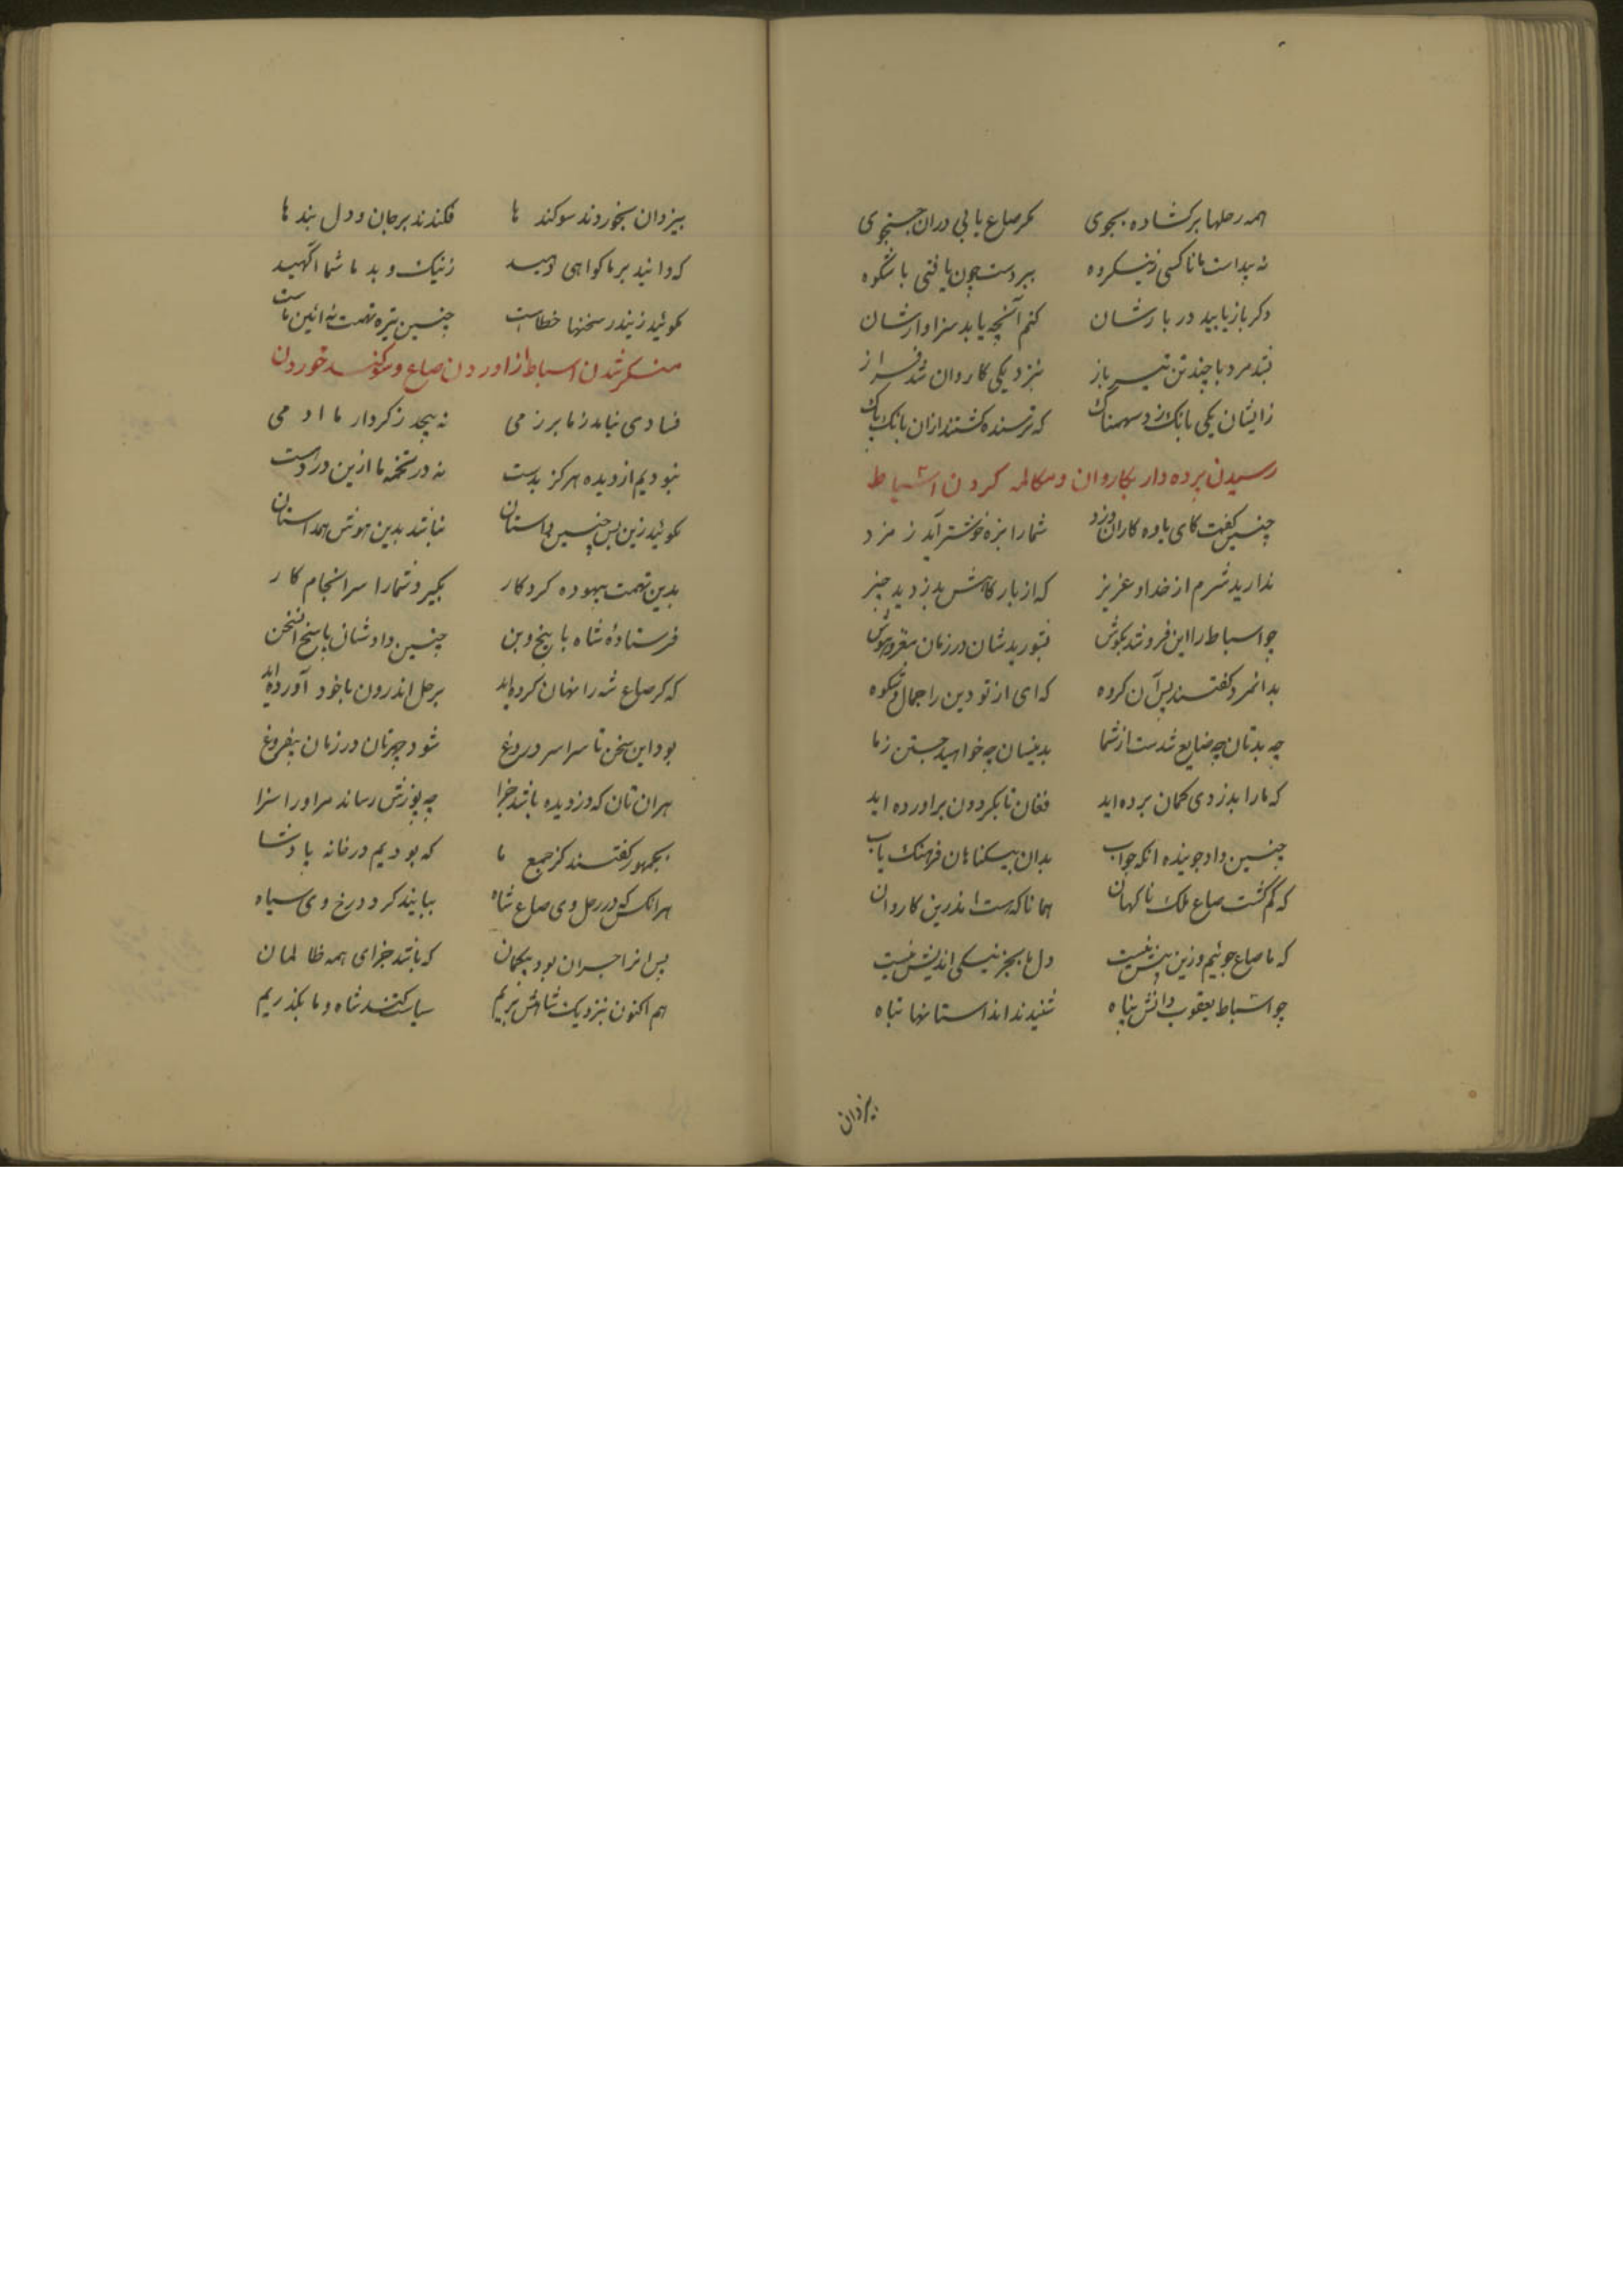 همه رحلها برکشاده بجوی مکر صاع یابی دران جستجوی
نه پیداست مانا کسی زینکروه ببردست چون یافتی باشکوه
دکر بازیابید در بارشان کنم آنچه یابد سزاوارشان
بشد مرد با چند تن تیز باز بنزدیکی کاروان شد فراز
زایشان یکی بانک زد سهمناک که ترسنده کشتند ازان بانک پاک
رسیدن پرده دار بکاروان و مکالمه کردن اسباط
چنین کفت کای یاوه کاران دزد شما را بزه خوشتر آید ز مزد
ندارید شرم از خدا و عزیز که از بارکاهش بدزدید چیز
چو اسباط را این فرو شد بکوش بشورید شان در زمان مغز و هوش
بدانمرد کفتند پس آن کروه که ای از تو دین را جمال و شکوه
چه بدتان چه ضایع شدست از شما بدینسان چه خواهید جستن ز ما
که ما را بدزدی کمان برده اید فغان تا بکردون براورده اید
چنین داد جوینده انکه جواب بدان بیکناهان فرهنک یاب
که کم کشت صاع ملک ناکهان همانا که هست اندرین کاروان
که ما صاع جوئیم و زین بیش نیست دل ما بجز نیکی اندیش نیست
چو اسباط یعقوب دانش پناه شنیدند انداستانها تباه
بیزدان
بیزدان بخوردند سوکند ها فکندند بر جان و دل بند ها
که دانید بر ما کواهی دهید ز نیک و بد ما شما آکهید
مکوئید زیندر سخنها خطاست چنین تیره تهمت نه ائین ماست
منکر شدن اسباط از اوردن صاع و سوکند خوردن
فسادی نیاید ز ما بر زمی نه پیچد ز کردار ما ادمی
نبودیم از دیده هرکز بدست نه در تخمه ما ازین در دست
مکوئید زین پس چنین داستان نباشد بدین هوش همداستان
بدین تهمت بیهوده کردکار بکیرد شما را سرانجام کار
فرستادهٔ شاه با بیخ و بن چنین داد شان پاسخ انسخن
که کر صاع شه را نهان کرده اید برحل اندرون با خود آورده اید
بود این سخن تا سراسر دروغ شود چهرتان در زمان بیفروغ
هران تان که دزدیده باشد جزا چه پوزش رساند مر او را سزا
بجمهور کفتند کز جمع ما که بودیم در خانه پادشا
هرانکس که در رحل وی صاع شاه بیابند کردد رخ وی سیاه
پس انرا جبران بود بیکمان که باشد جزای همه ظالمان
هم اکنون بنزدیک شاهش بریم سیاست کند شاه و ما بکذریم